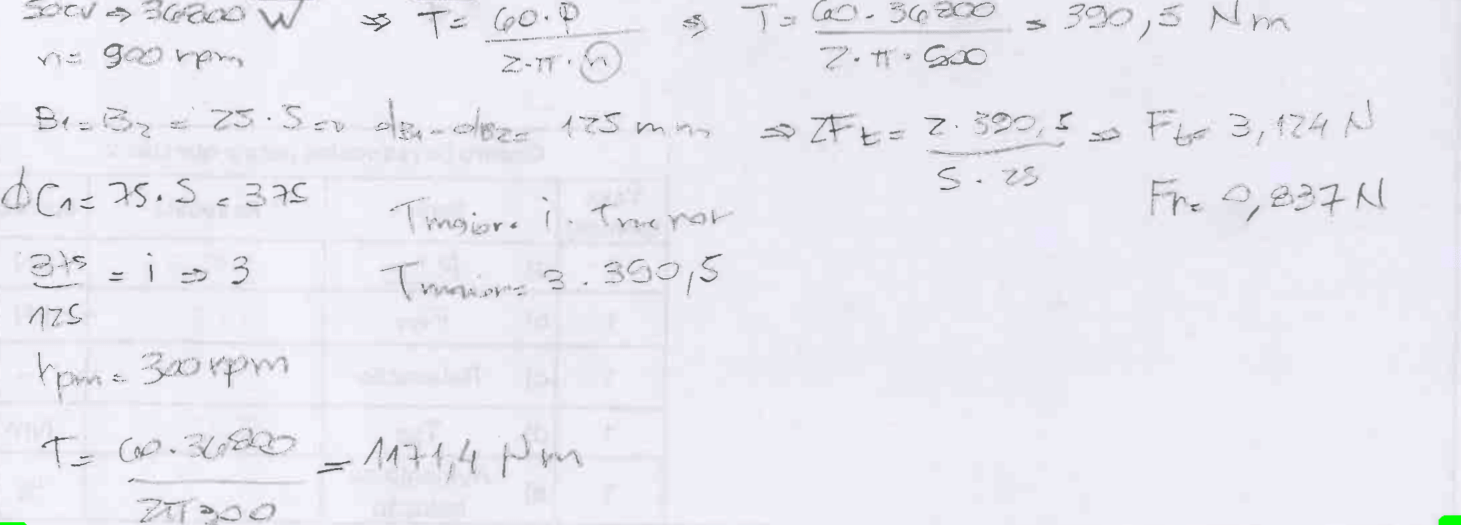 50cv ⇒ 36800 W ⇒ T = 60·P / 2·π·n ⇒ T = 60·36800 / 2·π·900 = 390,5 Nm
n = 900 rpm
B1 = B2 = 25·5 ⇒ dB1 = dB2 = 125 mm ⇒ 2Ft = 2·390,5 / 5·25 ⇒ Ft = 3,124 N
Fr = 0,837 N
ϕC1 = 75·5 = 375
Tmaior = i · Tmenor
375 / 125 = i ⇒ 3
Tmaior = 3 · 390,5
rpm = 300 rpm
T = 60·36800 / 2π300 = 1171,4 Nm